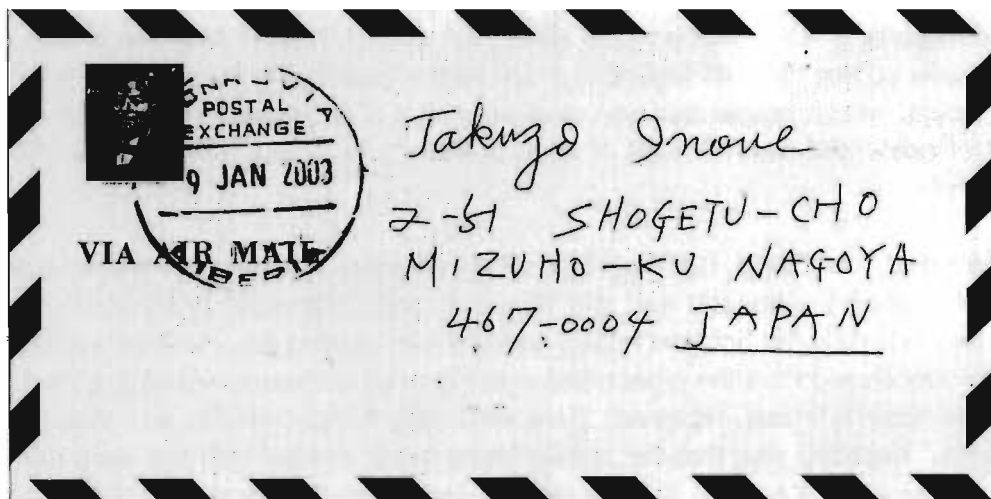 MONROVIA
POSTAL
EXCHANGE
9 JAN 2003
LIBERIA
VIA AIR MAIL
Takuzo Inoue
2-51 SHOGETU-CHO
MIZUHO-KU NAGOYA
467-0004 JAPAN